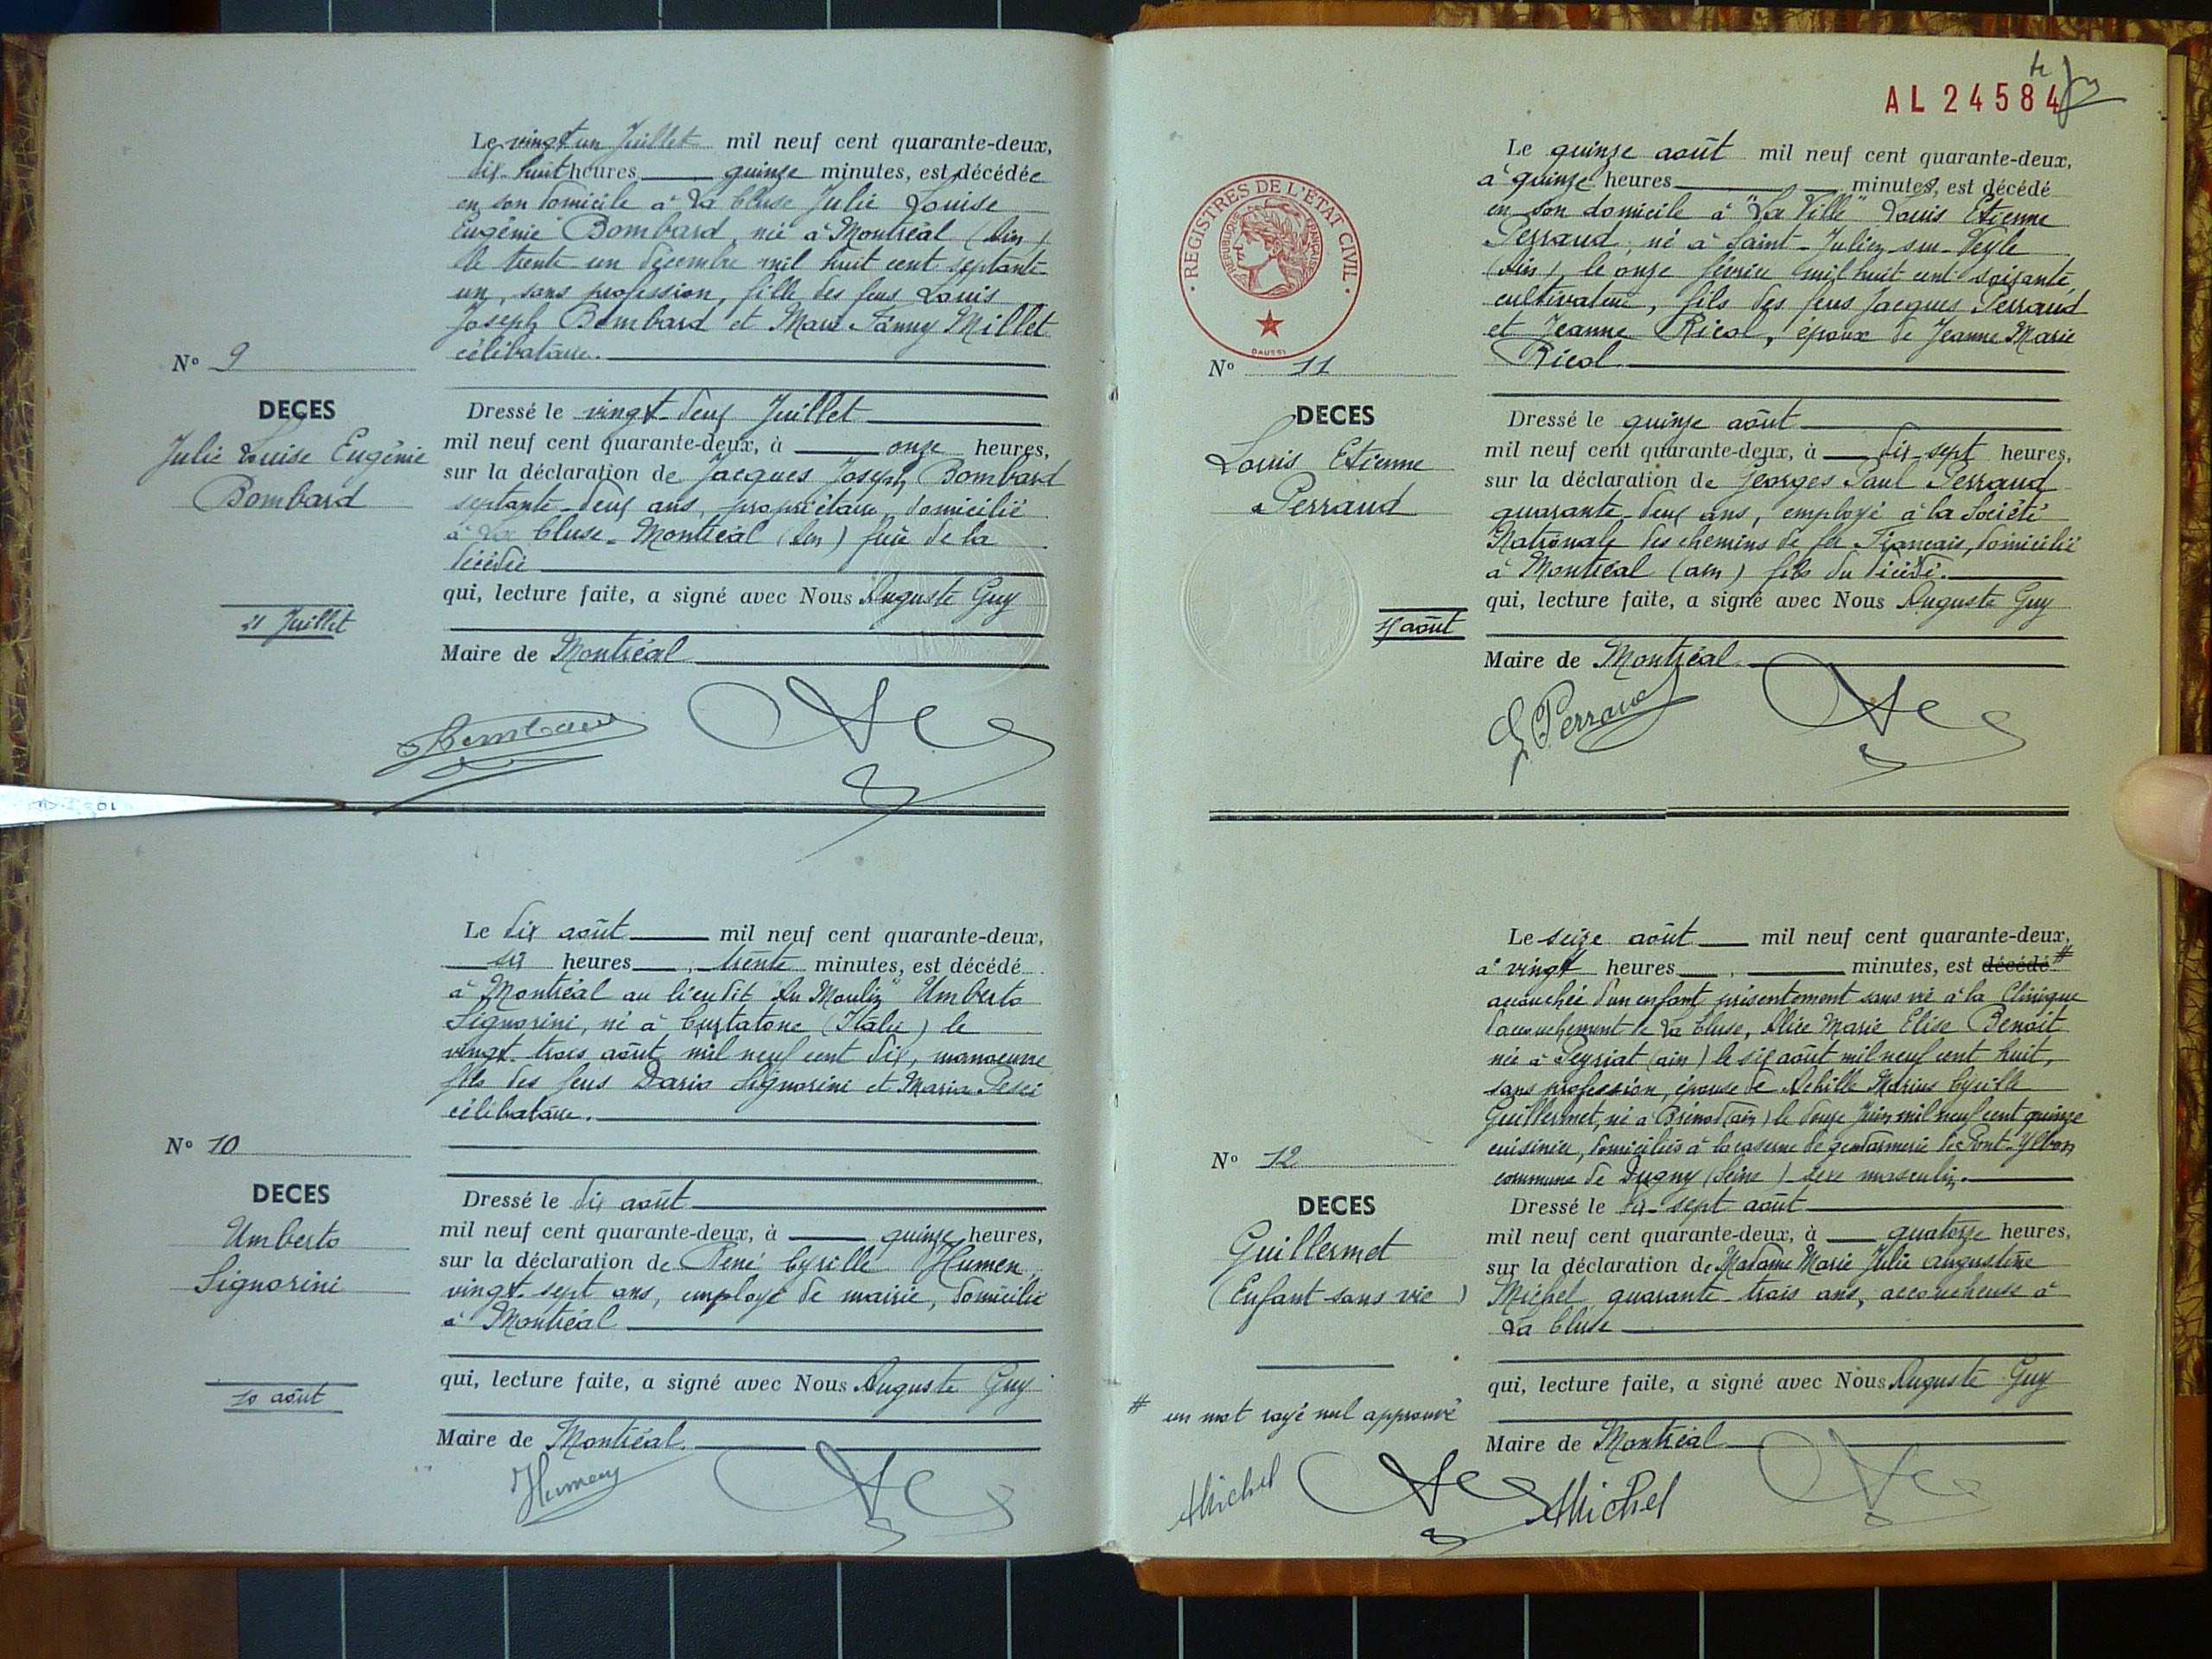 Le vingt un Juillet mil neuf cent quarante-deux,
dix-huit heures quinze minutes, est décédée
en son domicile à La Cluse Julie Louise
Eugénie Bombard, née à Montréal (Ain)
le trente un décembre mil huit cent septante
un, sans profession, fille des feus Louis
Joseph Bombard et Marie Fanny Millet
célibataire.
N° 9
DECES
Julie Louise Eugénie
Bombard
21 Juillet
Dressé le vingt-deux Juillet
mil neuf cent quarante-deux, à onze heures,
sur la déclaration de Jacques Joseph Bombard
septante-deux ans, propriétaire, domicilié
à La Cluse-Montréal (Ain) frère de la
décédée
qui, lecture faite, a signé avec Nous Auguste Guy
Maire de Montréal
Le dix août mil neuf cent quarante-deux,
six heures, trente minutes, est décédé
à Montréal au lieu dit "Au Moulin" Umberto
Signorini, né à Curtatone (Italie) le
vingt-trois août mil neuf cent dix, manoeuvre
fils des feus Dario Signorini et Maria Pesci
célibataire.
N° 10
DECES
Umberto
Signorini
10 août
Dressé le dix août
mil neuf cent quarante-deux, à quinze heures,
sur la déclaration de René Cyrille Humen
vingt-sept ans, employé de mairie, domicilié
à Montréal
qui, lecture faite, a signé avec Nous Auguste Guy
Maire de Montréal
AL 24584
REGISTRES DE L'ÉTAT CIVIL
REPUBLIQUE FRANÇAISE
DAUSSI
Le quinze août mil neuf cent quarante-deux,
à quinze heures minutes, est décédé
en son domicile à "La Ville" Louis Etienne
Perraud, né à Saint-Julien-sur-Veyle
(Ain), le onze février mil huit cent soixante
cultivateur, fils des feus Jacques Perraud
et Jeanne Ricol, époux de Jeanne Marie
Ricol
N° 11
DECES
Louis Etienne
Perraud
15 août
Dressé le quinze août
mil neuf cent quarante-deux, à dix-sept heures,
sur la déclaration de Georges Paul Perraud
quarante-deux ans, employé à la Société
Nationale des chemins de fer Français, domicilié
à Montréal (ain) fils du décédé.
qui, lecture faite, a signé avec Nous Auguste Guy
Maire de Montréal
G Perraud
Le seize août mil neuf cent quarante-deux,
à vingt heures, minutes, est décédé #
accouchée d'un enfant présentement sans vie à la Clinique
d'accouchement de La Cluse, Alice Marie Elise Benoit
née à Peyriat (ain) le six août mil neuf cent huit,
sans profession, épouse de Achille Marius Cyrille
Guillermet, né à Brénod (ain) le douze Juin mil neuf cent quinze
cuisinier, domiciliés à la caserne de gendarmerie de Pont-Yblon
commune de Dugny (Seine) - Sexe masculin.
N° 12
DECES
Guillermet
(Enfant sans vie)
# un mot rayé nul approuvé
Dressé le dix-sept août
mil neuf cent quarante-deux, à quatorze heures,
sur la déclaration de Madame Marie Julie Augustine
Michel quarante-trois ans, accoucheuse à
La Cluse
qui, lecture faite, a signé avec Nous Auguste Guy
Maire de Montréal
AMichel
AMichel